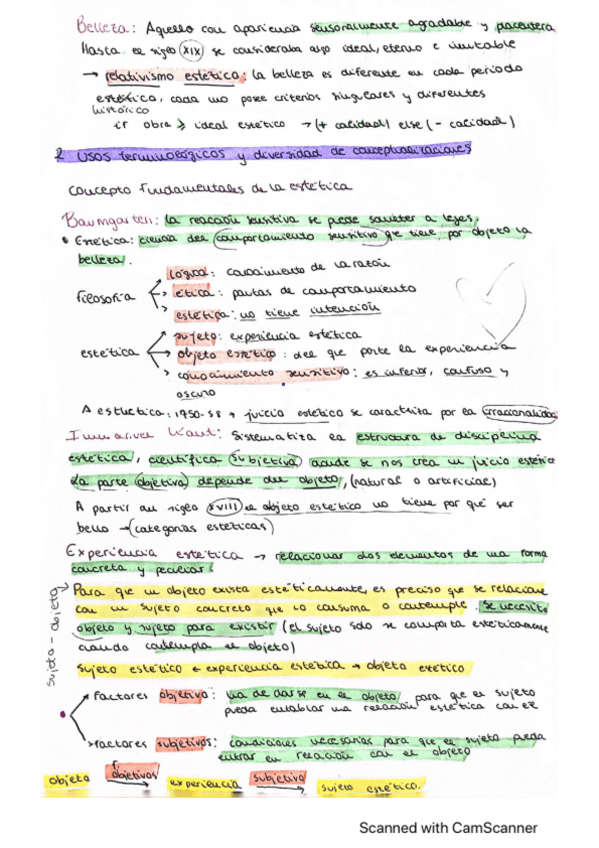 Belleza: Aquello con apariencia sensorialmente agradable y placentera
Hasta el siglo XIX se consideraba algo ideal, eterno e imitable
→ relativismo estético: la belleza es diferente en cada periodo
estético, cada uno posee criterios singulares y diferentes
histórico
ir obra > ideal estético → (+ calidad) else (- calidad)
2 Usos terminológicos y diversidad de conceptualizaciones
concepto fundamentales de la estética
Baumgarten: la reacción sensitiva se puede someter a leyes.
• Estética: ciencia del comportamiento sensitivo que tiene por objeto la
belleza.
filosofía
lógica: conocimiento de la razón
ética: pautas de comportamiento
estética: no tiene intención
estética
sujeto: experiencia estética
objeto estético: del que parte la experiencia
conocimiento sensitivo: es inferior, confuso y
oscuro
Aesthetica: 1750-58 → juicio estético se caracteriza por la irracionalidad
Immanuel Kant: Sistematiza la estructura de disciplina
estética, científica (subjetiva) donde se nos crea un juicio estético
La parte objetiva depende del objeto, (natural o artificial)
A partir del siglo XVIII el objeto estético no tiene por qué ser
bello → (categorías estéticas)
Experiencia estética → relacionar dos elementos de una forma
concreta y peculiar.
sujeto - objeto
Para que un objeto exista estéticamente, es preciso que se relacione
con un sujeto concreto que lo consuma o contemple. Se necesita
objeto y sujeto para existir (el sujeto solo se comporta estéticamente
cuando contempla el objeto)
sujeto estético ← experiencia estética → objeto estético
Factores objetivo: ha de darse en el objeto, para que el sujeto
pueda entablar una relación estética con él
Factores subjetivos: condiciones necesarias para que el sujeto pueda
entrar en relación con el objeto
objeto objetivos → experiencia subjetivo → sujeto estético.
Scanned with CamScanner